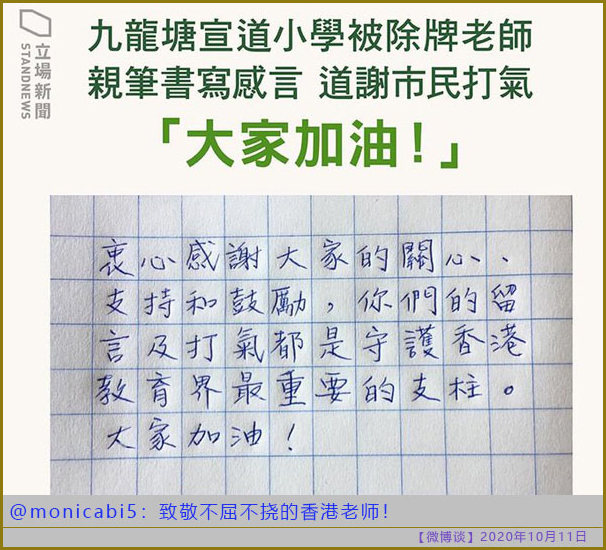 立場新聞
STANDNEWS
九龍塘宣道小學被除牌老師
親筆書寫感言 道謝市民打氣
「大家加油！」
衷心感謝大家的關心、
支持和鼓勵，你們的留
言及打氣都是守護香港
教育界最重要的支柱。
大家加油！
@monicabi5：致敬不屈不挠的香港老师！
【微博谈】2020年10月11日